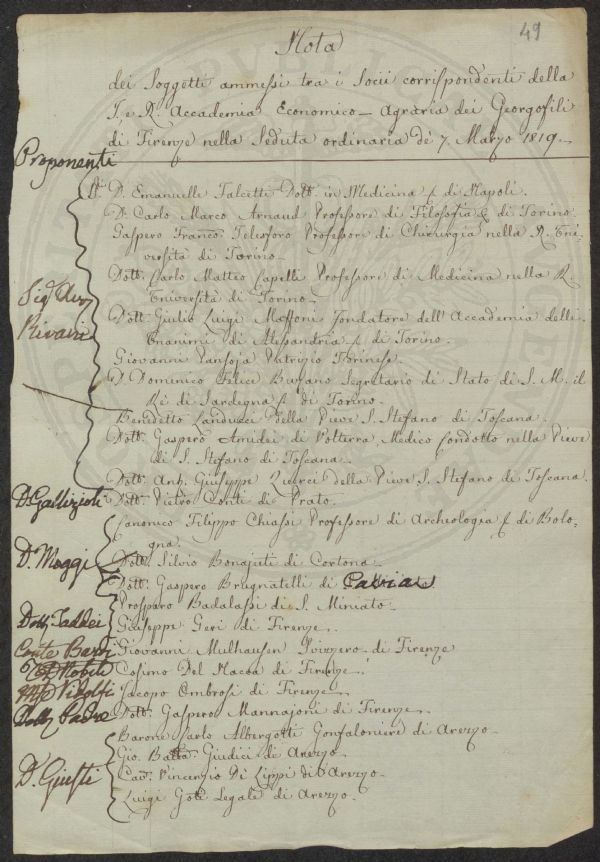 49
Nota
dei Soggetti ammessi tra i Socii corrispondenti della
I. e R. Accademia Economico-Agraria dei Georgofili
di Firenze nella Seduta ordinaria de 7. Marzo 1819.
Proponenti
D. Emanuelle Falcetti Dott. in Medicina di Napoli.
D. Carlo Marco Arnaud Professore di Filosofia di Torino.
Gaspero Franco Telesforo Professore di Chirurgia nella R. Uni=
versità di Torino
Dott. Carlo Matteo Capelli Professore di Medicina nella R.
Università di Torino
Sig.
Dott. Giulio Luigi Fondatore dell'Accademia delle
di Alessandria di Torino.
Giovanni Patrizio Torinese.
D. Dominico Felice Segretario di Stato di S. M. il
Re di Sardegna di Torino.
Benedetto Landucci della Pieve S. Stefano di Toscana.
Dott. Gaspero Amidei di Volterra Medico Condotto nella Pieve
di S. Stefano di Toscana.
Dott. Ant. Giuseppe della Pieve S. Stefano di Toscana
D. Gallizioli Dott. Pietro Conti di Prato.
Canonico Filippo Schiassi Professore di Archeologia di Bolo=
gna.
D. Moggi Dott. Silvio Bonajuti di Cortona
Dott. Gaspero Brugnatelli di Pavia
Prospero Badalassi di S. Miniato.
Dott. Taddei Giuseppe Geri di Firenze.
Conte Bardi Giovanni Mulhausen Svizzero di Firenze
Cosimo Del Nacca di Firenze.
Ridolfi Jacopo Ombrosi di Firenze
Dott. Gaspero Mannajoni di Firenze.
Barone Carlo Albergotti Gonfaloniere di Arezzo
Gio. Batta. Giudici di Arezzo.
D. Giusti Cav. Vincenzio Di Lippi di Arezzo.
Luigi Legale di Arezzo.